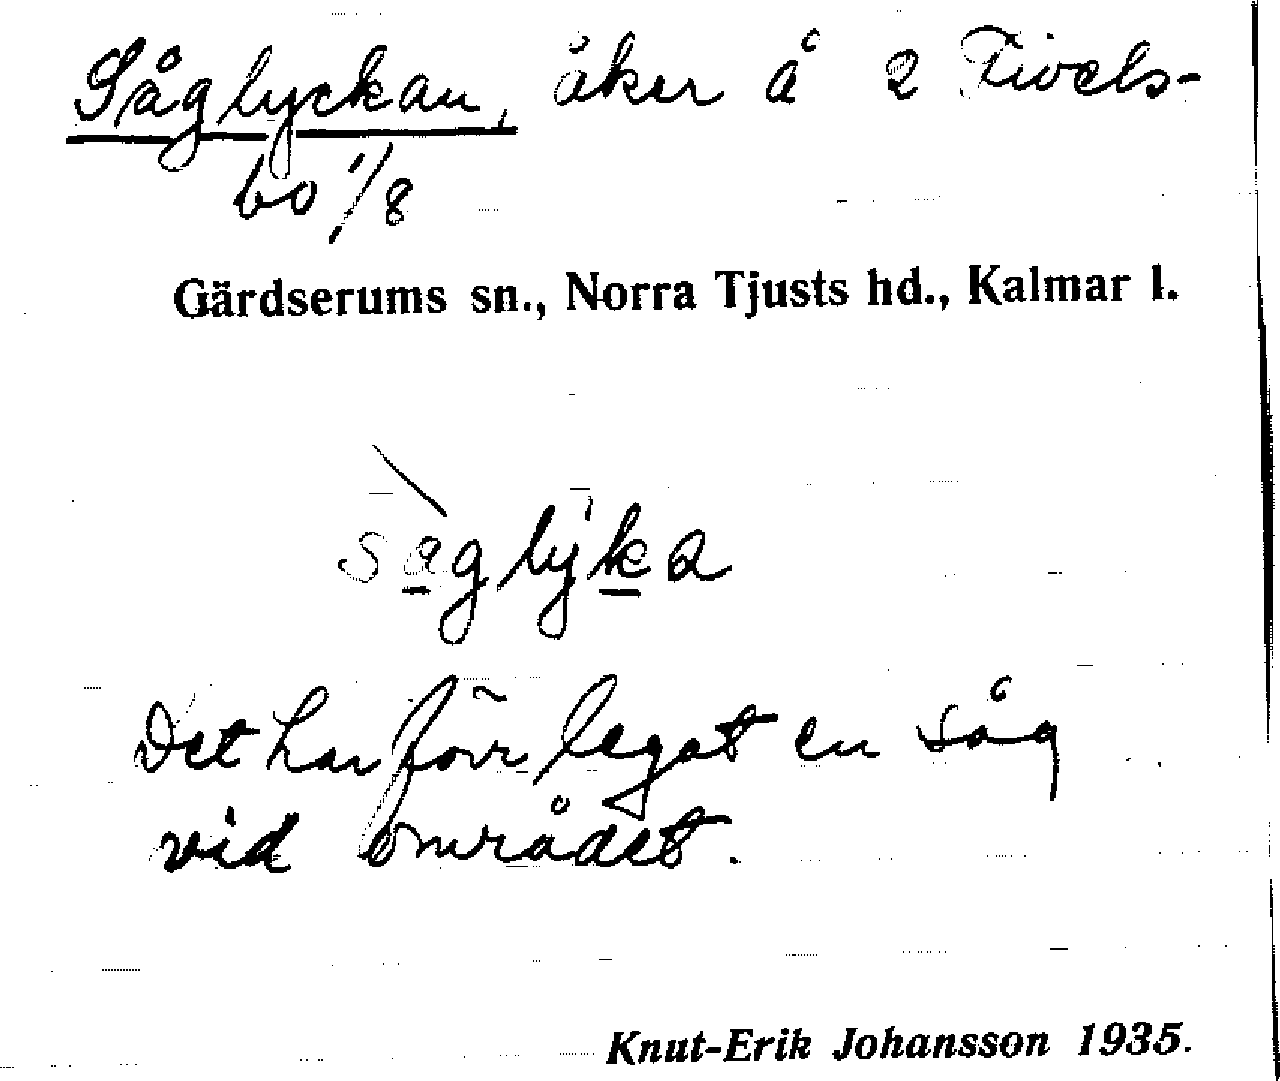 Såglyckan, åker å 2 Tivels-
bo 1/8
Gärdserums sn., Norra Tjusts hd., Kalmar l.
såglyka
Det har förr legat en såg
vid området.
Knut-Erik Johansson 1935.